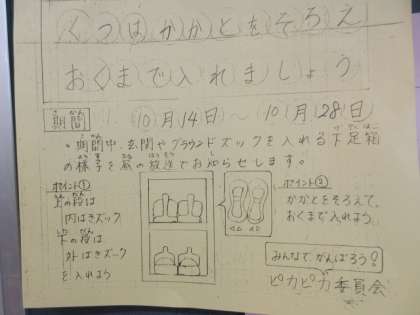 くつはかかとをそろえ
おくまで入れましょう
期間 10月14日〜10月28日
・期間中、玄関やグラウンドズックを入れる下足箱
の様子を昼の放送でお知らせします。
ポイント①
上の段は
内はきズック
下の段は
外はきズック
を入れよう
ポイント②
かかとをそろえて、
おくまで入れよう。
みんなで、がんばろう!
ピカピカ委員会